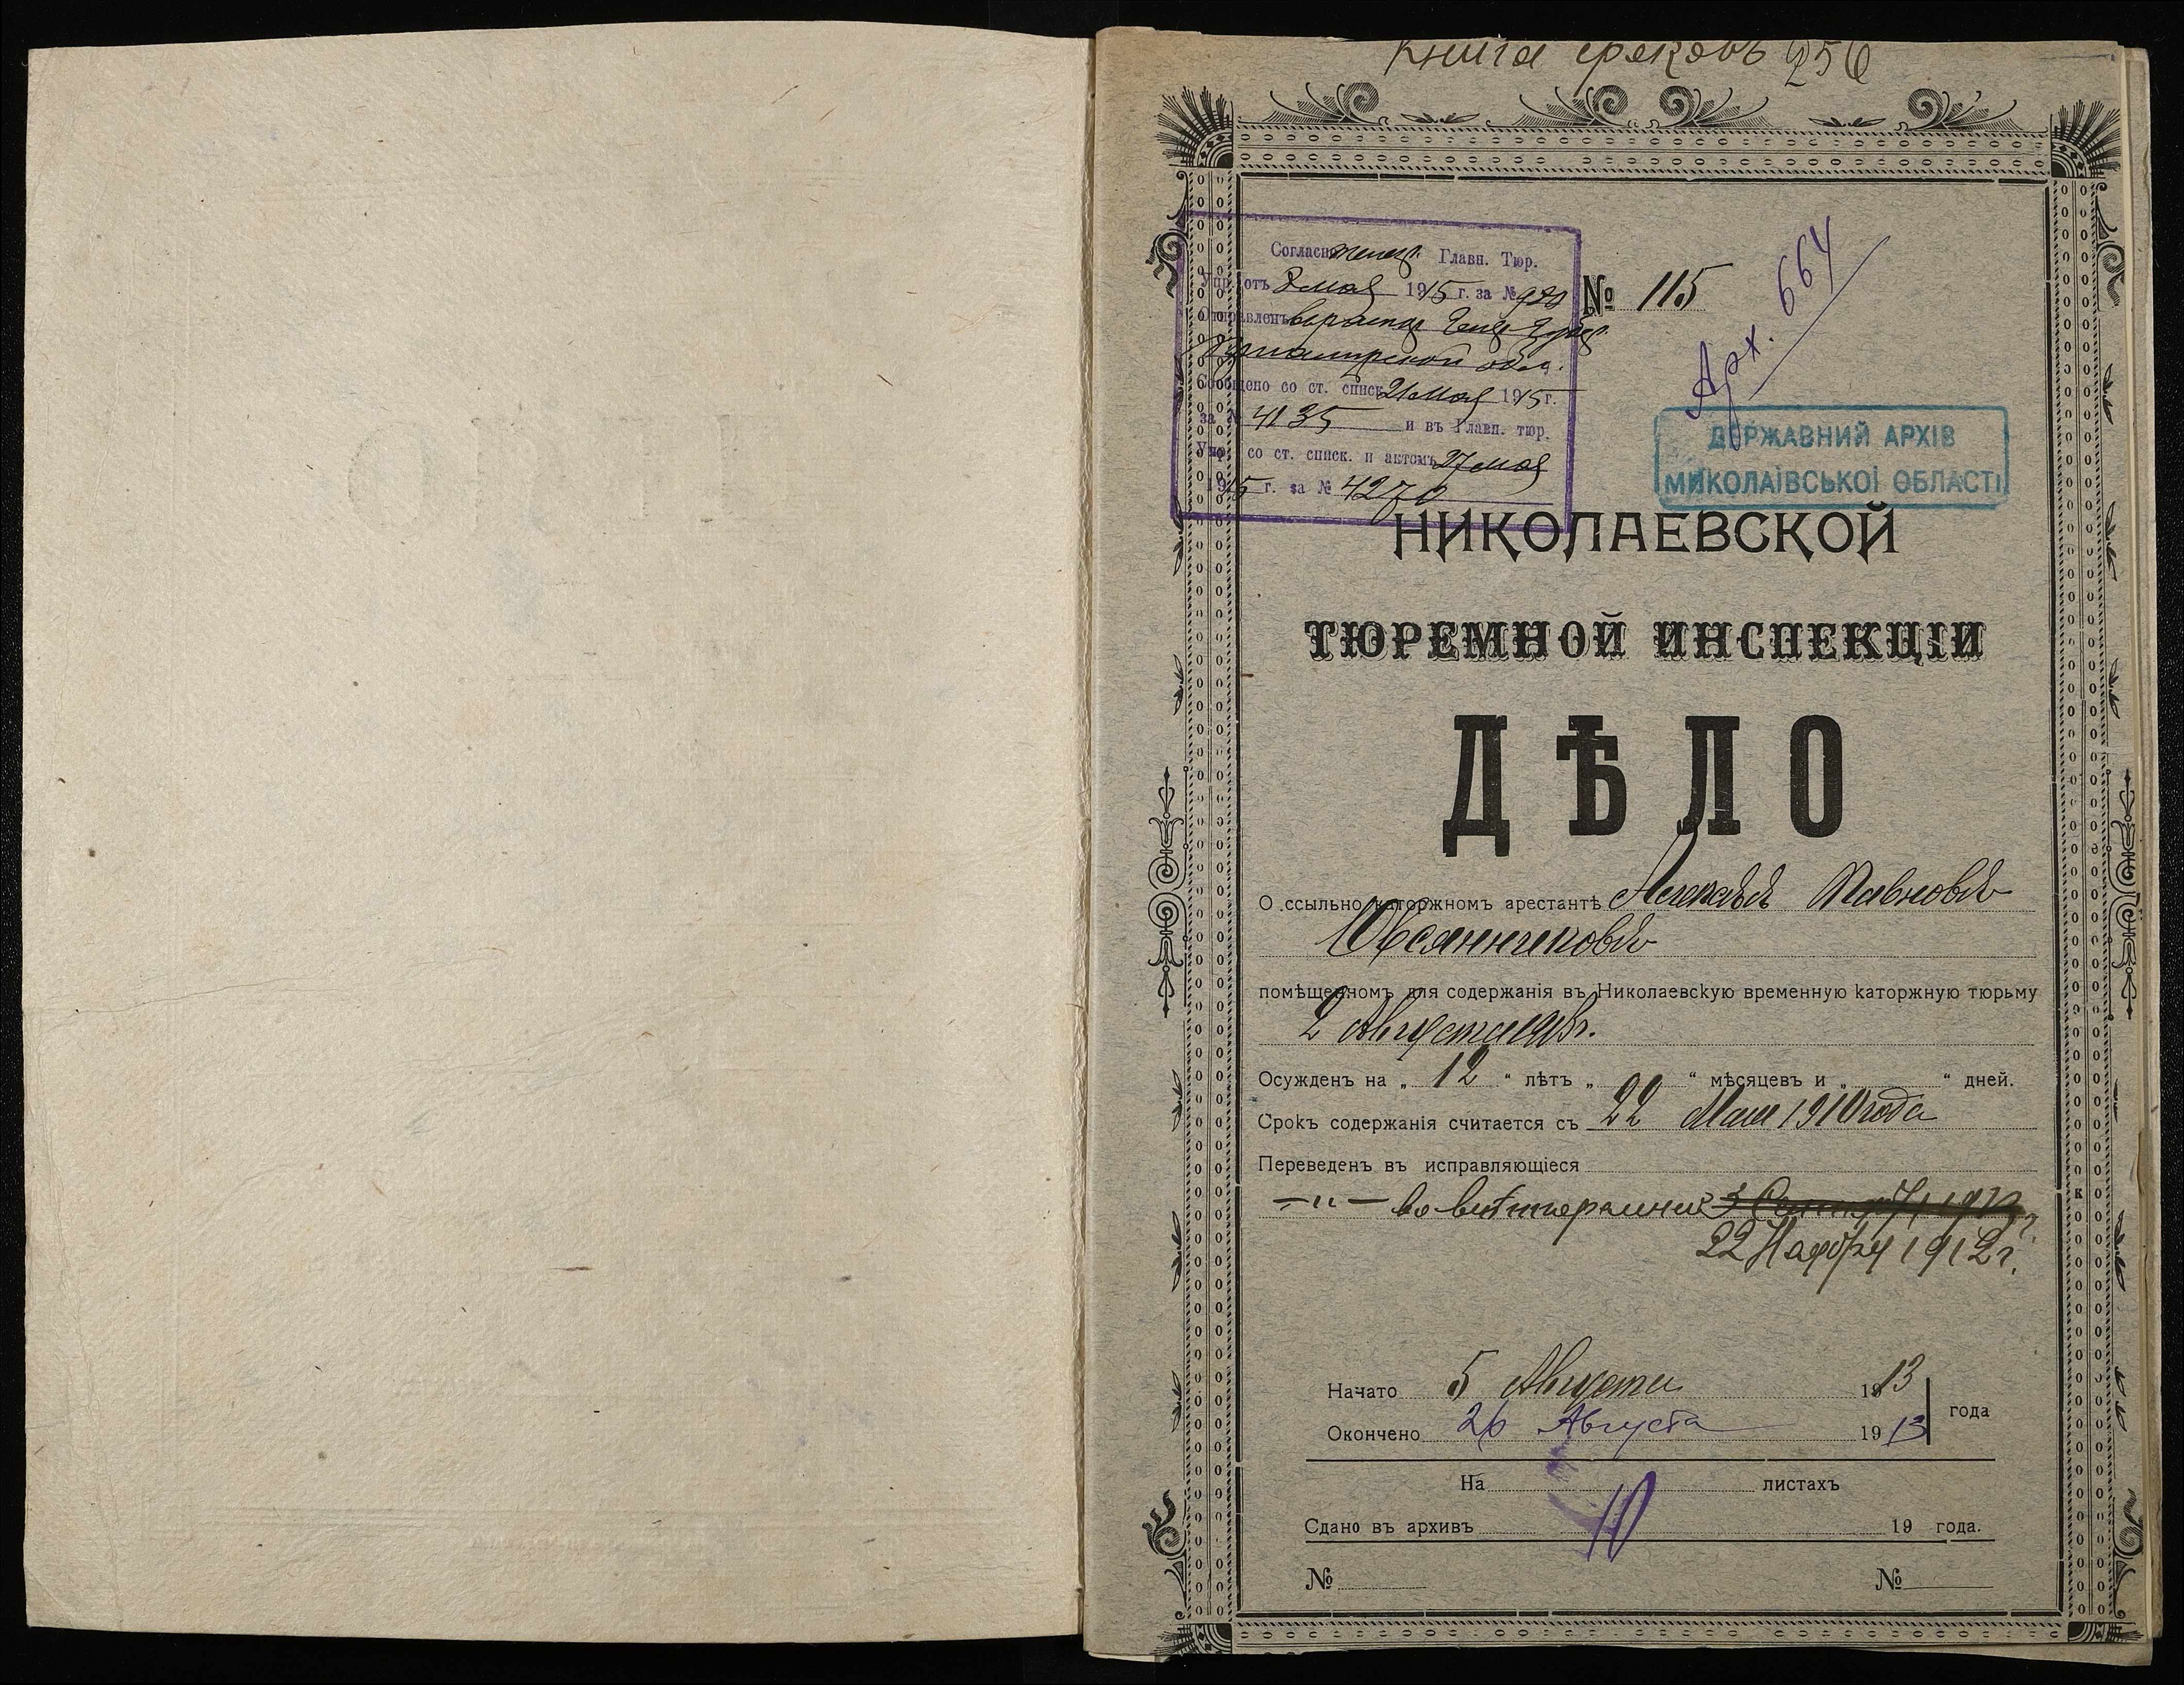 Книга сроковъ 256
Согласно телегр. Главн. Тюр.
Упр. отъ 8 мая 1915 г. за №
Отправленъ
обл.
Сообщено со ст. списк. 21 мая 1915 г.
за № 4135 и въ Главн. тюр.
Упр. со ст. списк. и актомъ 27 мая
1915 г. за № 4270
№ 115
Арх. 664
ДЕРЖАВНИЙ АРХІВ
МИКОЛАЇВСЬКОЇ ОБЛАСТІ
НИКОЛАЕВСКОЙ
ТЮРЕМНОЙ ИНСПЕКЦІИ
ДѢЛО
О ссыльно каторжномъ арестантѣ Алексѣѣ
Овсянниковѣ
помѣщенномъ для содержанія въ Николаевскую временную каторжную тюрьму
2 Августа 1913 г.
Осужденъ на „ 12 “ лѣтъ „ “ мѣсяцевъ и „ “ дней.
Срокъ содержанія считается съ 22 Мая 1910 года
Переведенъ въ исправляющіеся
—„— во внѣтюремный
22 Ноября 1912 г.
Начато 5 Августа 1913
года
Окончено 26 Августа 1913
На 10 листахъ
Сдано въ архивъ 19 года.
№ №